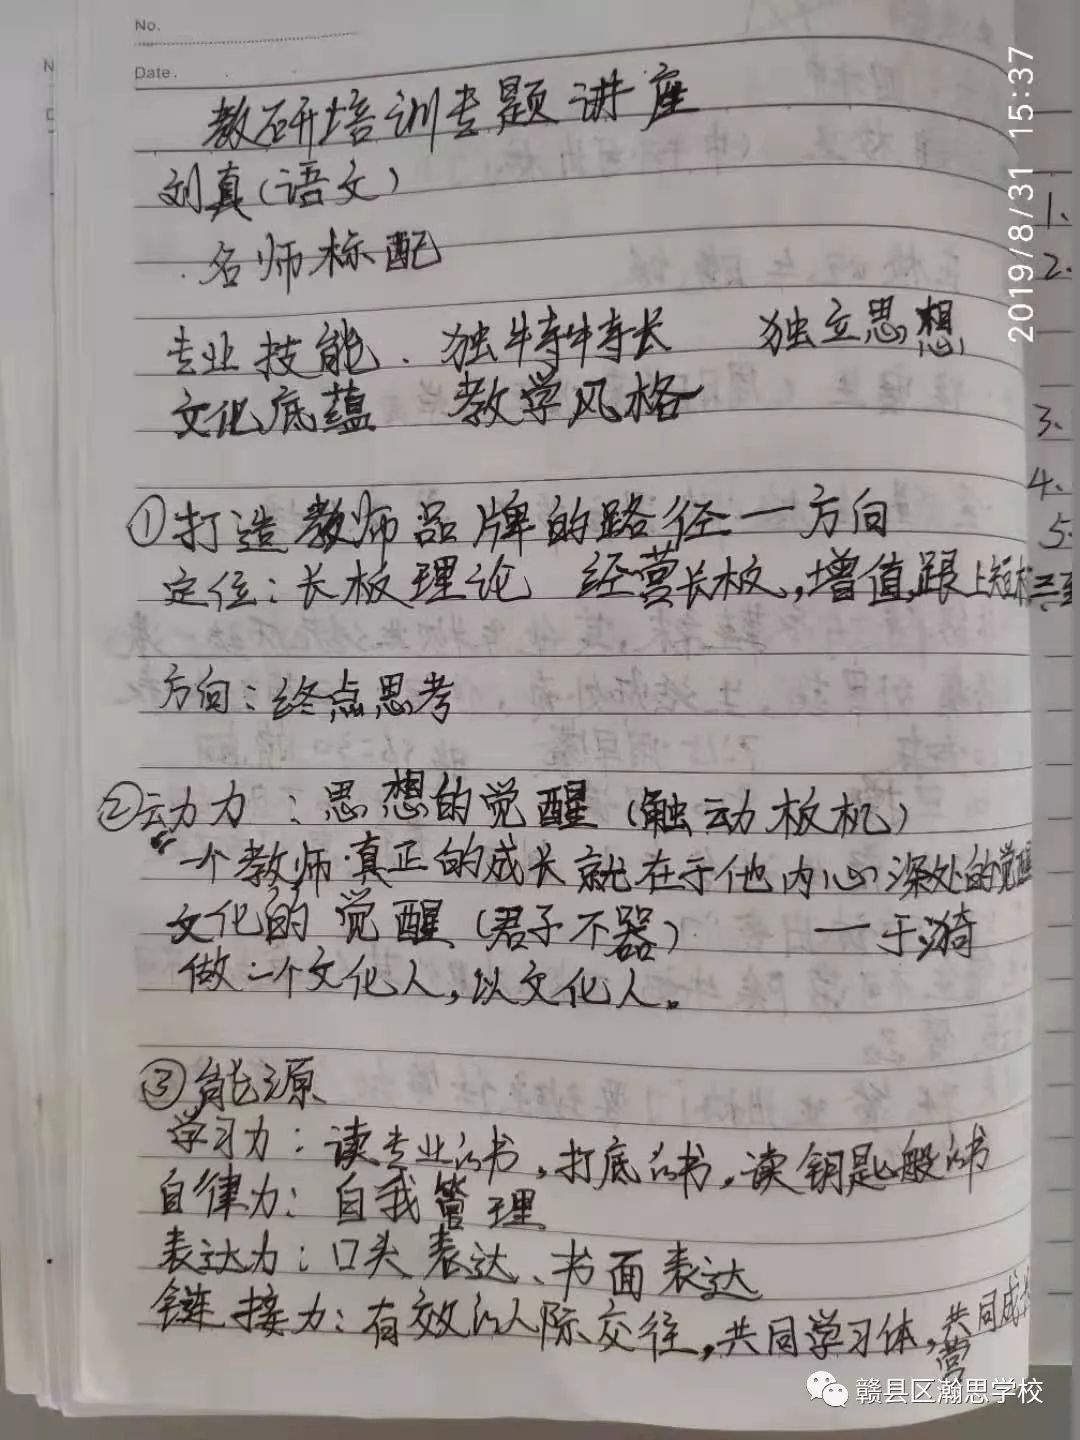 No.
Date.
教研培训专题讲座
刘真(语文)
名师标配
专业技能、独特特长 独立思想
文化底蕴 教学风格
①打造教师品牌的路径—方向
定位：长板理论 经营长板，增值，跟上短板
方向：终点思考
②动力：思想的觉醒(触动板机)
“一个教师真正的成长就在于他内心深处的觉醒
文化的觉醒(君子不器) —于漪
做一个文化人，以文化人。
③能源
学习力：读专业的书，打底的书，读钥匙般的书
自律力：自我管理
表达力：口头表达、书面表达
链接力：有效的人际交往，共同学习体，共同成长
营
1、
2、
3、
4、
5、
2019/8/31 15:37
赣县区瀚思学校